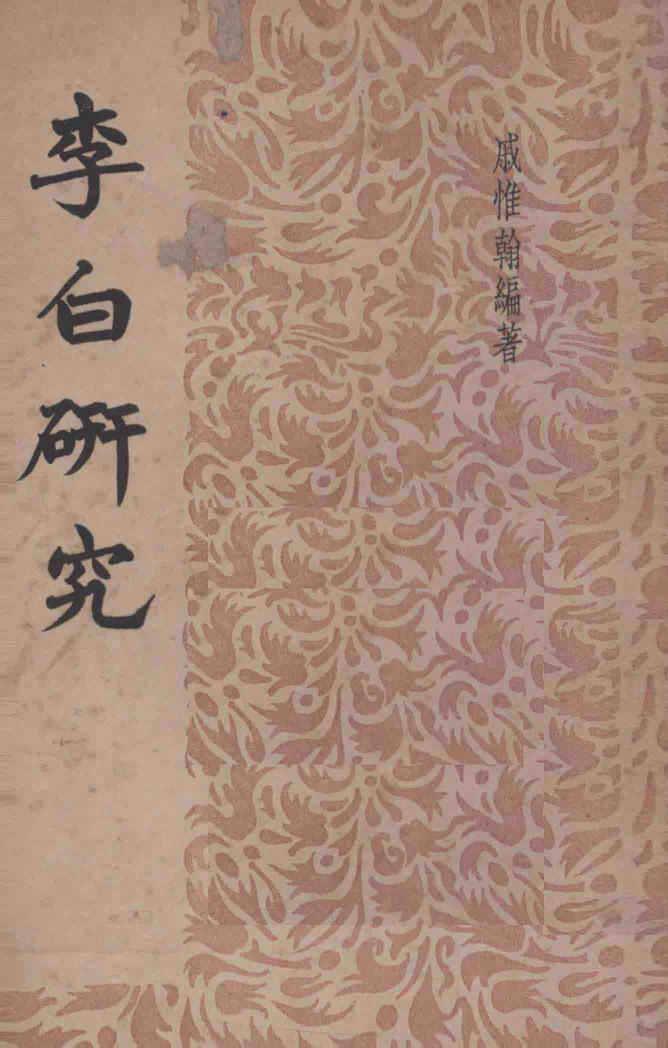 戚惟翰編著
李白研究